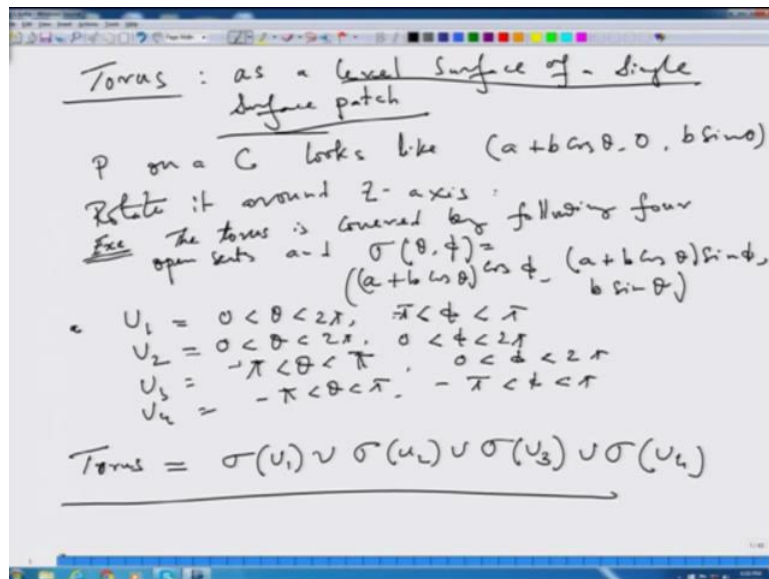 Torus : as a level surface of a single
surface patch
P on a C looks like (a + b cos θ, 0, b sin θ)
Rotate it around Z-axis :
Exe The torus is covered by following four
open sets and σ(θ, ϕ) =
((a + b cos θ) cos ϕ, (a + b cos θ) sin ϕ,
b sin θ)
U₁ = 0 < θ < 2π, -π < ϕ < π
U₂ = 0 < θ < 2π, 0 < ϕ < 2π
U₃ = -π < θ < π, 0 < ϕ < 2π
U₄ = -π < θ < π, -π < ϕ < π
Torus = σ(U₁) ∪ σ(U₂) ∪ σ(U₃) ∪ σ(U₄)